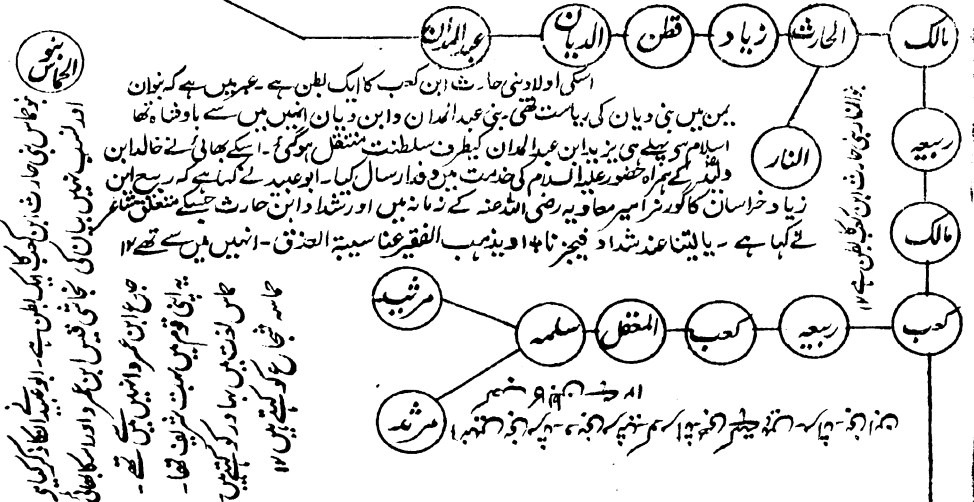 مالک
الحارث
زیاد
قطن
الدیان
عبدالمدان
اسکی اولاد بنی حارث ابن کعب کا ایک بطن ہے۔ عبر میں ہے کہ بخران
یمن میں بنی دیان کی ریاست تھی۔ بنی عبدالمدان وابن دیان انہیں میں سے بادشاہ تھا
اسلام سے پہلے ہی یزید ابن عبدالمدان کیطرف سلطنت منتقل ہوگئی۔ اسکے بھائی نے خالد ابن
ولید کے ہمراہ حضور علیہ السلام کی خدمت میں وفد ارسال کیا۔ ابو عبید نے کہا ہے کہ ربیع ابن
زیاد خراسان کا گورنر امیر معاویہ رضی اللہ عنہ کے زمانہ میں اور شداد ابن حارث جسکے متعلق شاعر
نے کہا ہے ۔ یا لیتنا عند شداد فیجزنا اویذہب الفقر عنا سیبۃ الغدق ۔ انہیں میں سے تھے ۱۲
النار
بنو النار بنی حارث ابن کعب کا بطن ہے ۱۲
ربیعہ
مالک
کعب
ربیعہ
کعب
المعقل
سلمہ
مرثید
مرثد
بنو الحماس
بنو حماس بنی حارث ابن کعب کا ایک بطن ہے۔ ابو عبید نے انکا ذکر کیا ہے
اور نسب نہیں بیان کی نجاشی قیس ابن عمر اور اسکا بھائی
خدیج ابن عمر وانہیں میں سے تھے ۔
یہ اپنی قوم میں بہت شریف تھا ۔
حماس لغت میں بہادر کو کہتے ہیں
حماسہ شجاع کو کہتے ہیں ۱۲